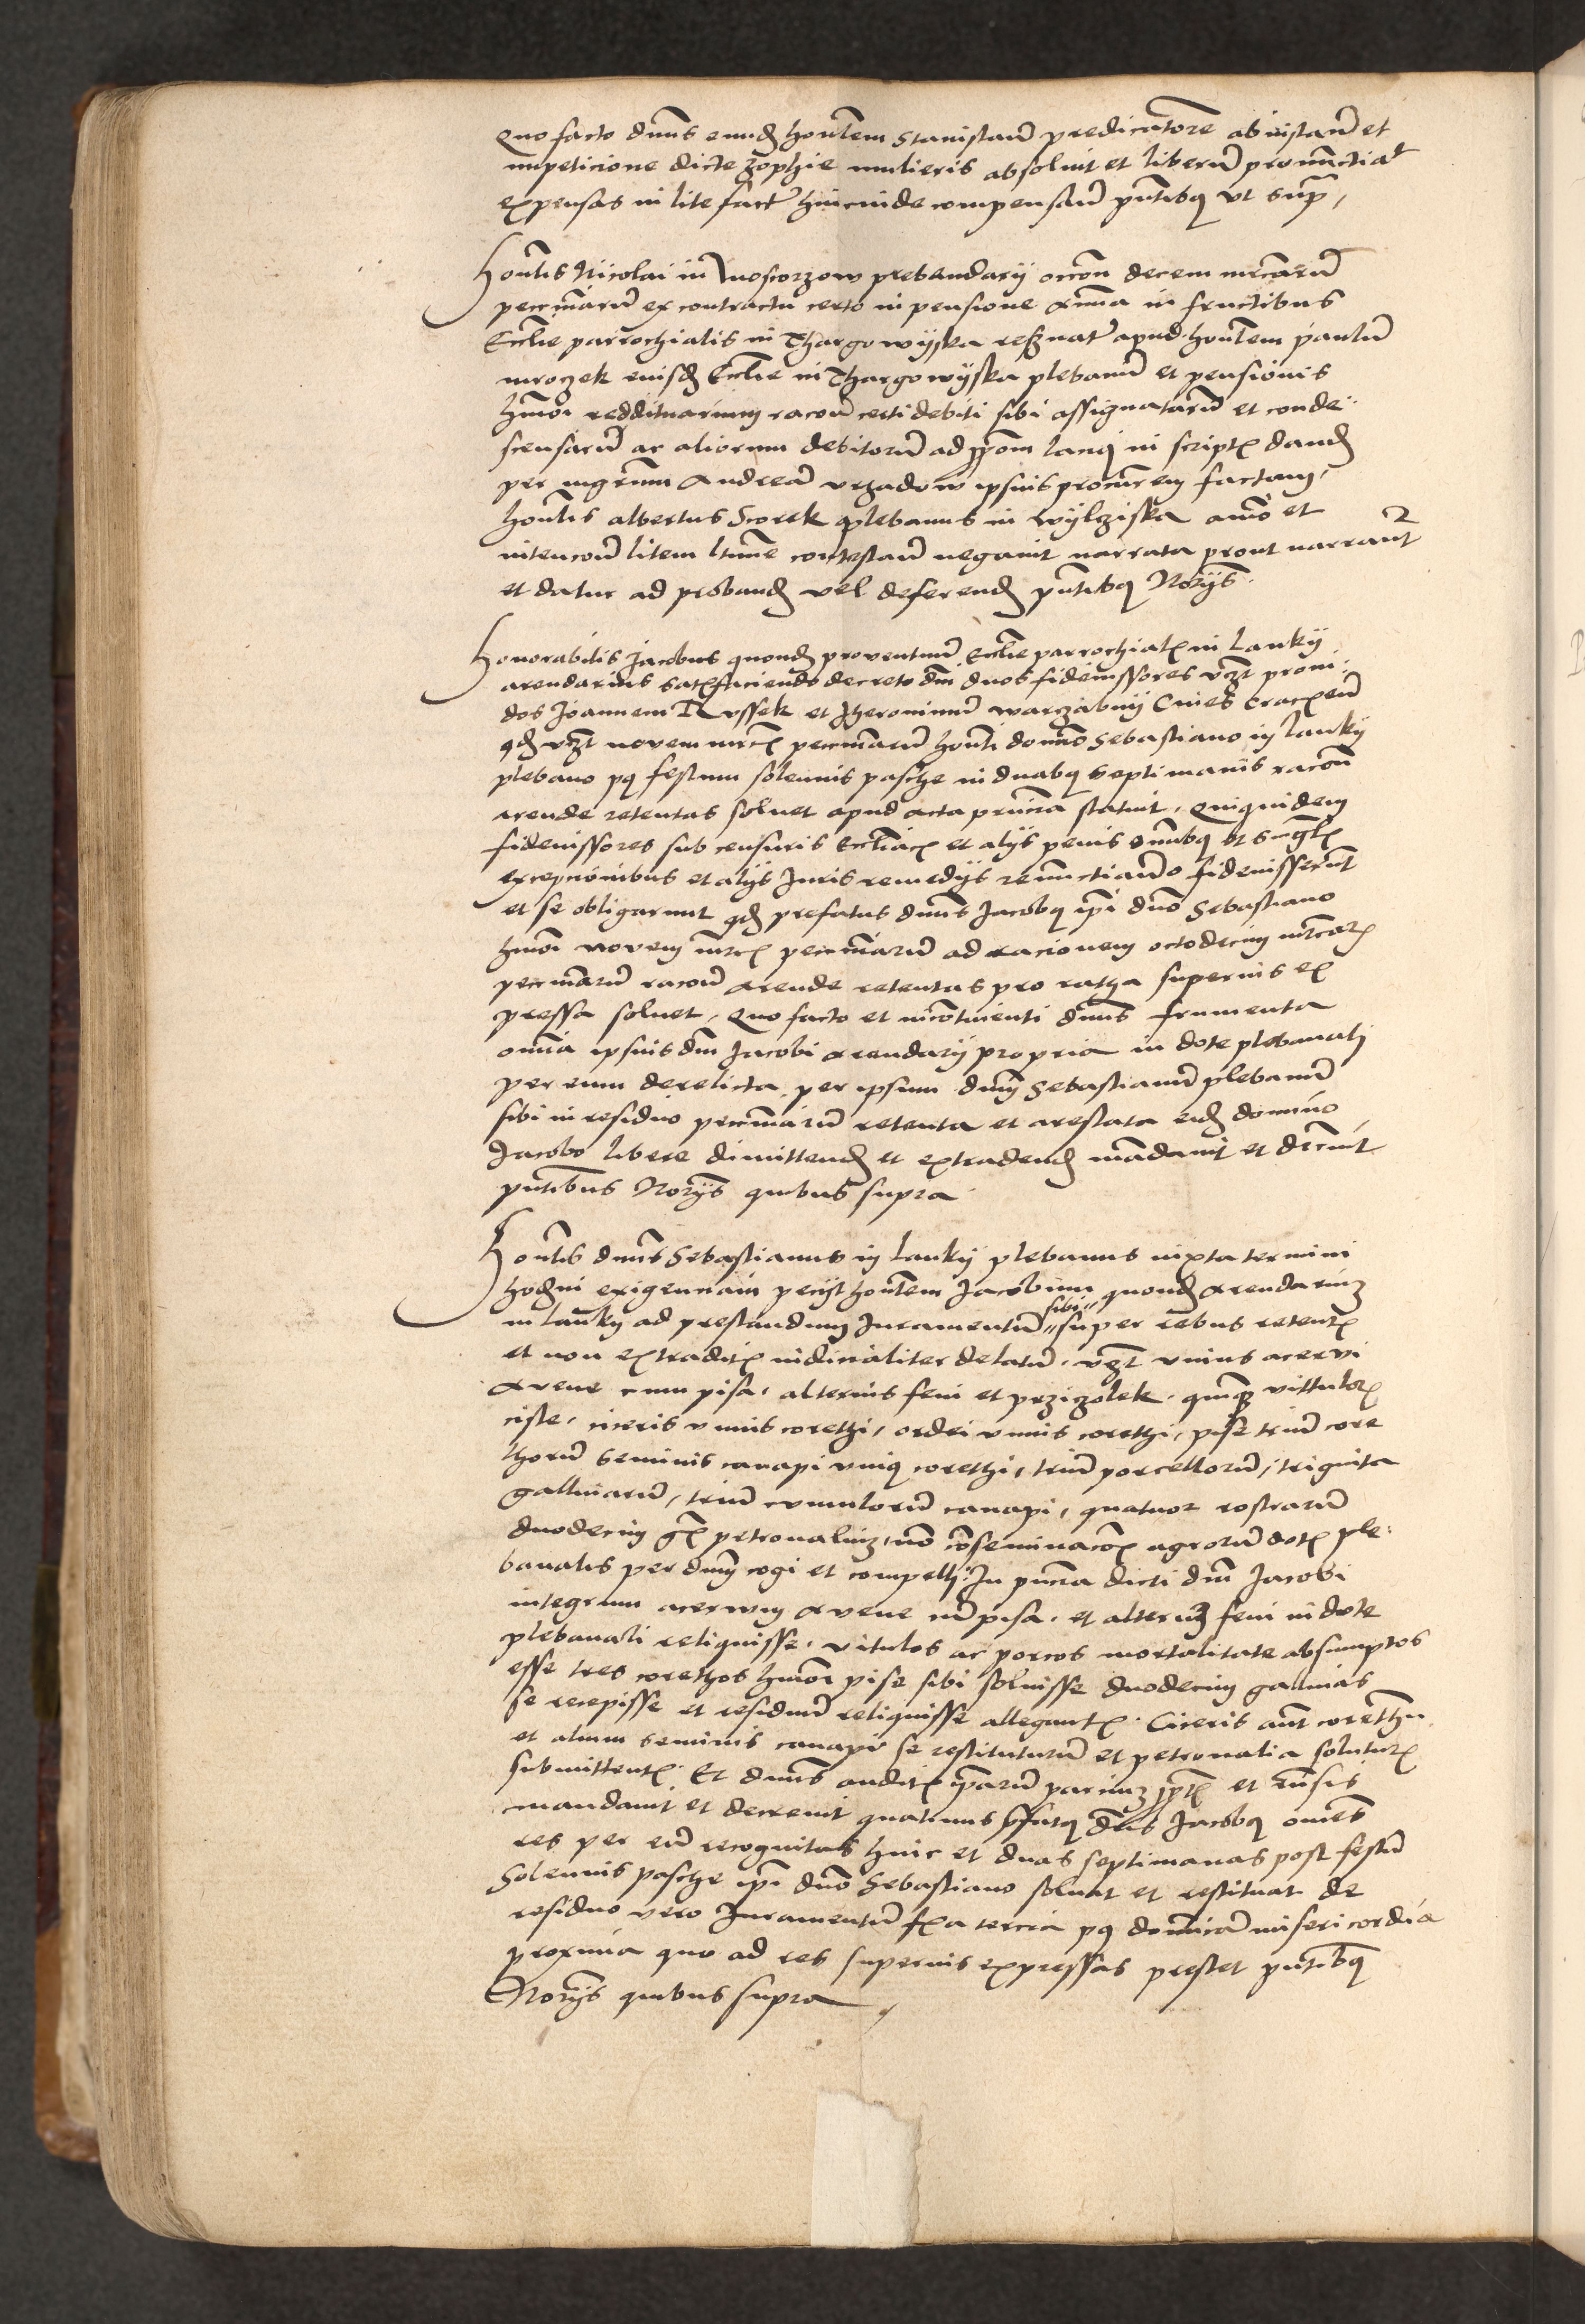 Quo facto dnus eundem honlem Stanislaum predicatorem ab instantia et
impeticione dicte Zophie mulieris absoluit et liberum pronunctiat
expensas in lite factas hincinde compensandum pntibus vt supra,
Honlis Nicolai in Moscorzow prebendarij occon decem mrcarum
pecuniarum ex contractu certo in pensione annua in fructibus
Ecclie parrochialis in Thargowyska reseruatar apud honlem paulum
mroczek eiusdem Ecclie in Thargowyska plebanum et pensionis
hmoi reddituarium racone certi debiti sibi assignatarum et conde-
scensarum ac aliorum debitorum ad in scriptis dandam
per mgrum Andream vrzadow ipsius procurem factam,
honlis albertus Scorek plebanus in Wylcziska animo et
intencone litem ltime contestandi negauit narrata prout narrantur
et datur ad probandum vel deferendum pntibus Norijs.
Honorabilis Jacobus quondam prouentuum Ecclie parrochialis in lanky
arendarius satisfaciendo decreto dni duos fideiussores vzt proui-
dos Joannem Russek et Jheronimum warzabny Ciues Cracouien
qd vzt nouem mrcas pecuniarum honli domino Sebastiano in lanky
plebano post festum solennis pasche in duabus septimanis racone
arende retentas soluet apud acta presencia statuit, Quiquidem
fideiussores sub censuris Ecclasticis et alijs penis omnibus vt singulis
excepcionibus et alijs Juris remedijs renunctiando fideiusserunt
et se obligarunt qd prefatus dnus Jacobus ipi dno Sebastiano
hmoi nouem mrcas pecuniarum ad racionem octodecim mrcarum
pecuniarum racone arende retentas pro ratha superius ex
pressa soluet, Quo facto et incontinenti dnus frumenta
omnia ipsius dni Jacobi arendarij propria in dote plebanali
per eum derelicta per ipsum dnum Sebastianum plebanum
sibi in residuo pecuniarum retenta et arestata eidem domino
Jacobo libere dimittendum et extradendum mandauit et decreuit
pntibus Norijs quibus supra
Honlis dnus Sebastianus in lanky plebanus iuxta termini
hodierni exigenciam pecijt honlem Jacobum quondam arendarium
in lanky ad prestandum Juramentum sibi super rebus retentis
et non extraditis iudicialiter delatum, vzt vnius acerui
auene cum pisa, alterius feni et przizolek, quinque vittulorum
ciste, ciceris vnius corethi, ordei vnius corethi, pise trium core
thorum seminis canapi vnius corethi, trium porcellorum, triginta
gallinarum, trium cumulorum canapi, quatuor rostrarum
duodecim gr petronalium, non conseminacois agrorum dotis ple-
banalis per dnum cogi et compelli. In pncia dicti dni Jacobi
integrum aceruum auene cum pisa, et alterum feni in dote
plebanali reliquisse, vitulos ac porcos mortalitate absumptos
esse tres corethos hmoi pise sibi soluisse duodecim gallinas
se recepisse et residuum reliquisse allegantis. Ciceris aut corethum
et alium seminis canapi se restituturum et petronalia soluturum
submittentis. Et dnus auditis ipsarum parcium et
mandauit et decreuit quatinus prefatus dnus Jacobus omnes
res per eum recognitas hinc et duas septimanas post festum
Solennis pasche ipi dno Sebastiano soluat et restituat de
residuo vero Juramentum feria tercia post dominicam misericordia
proxima quo ad res superius expressas prestet pntibus
Norijs quibus supra